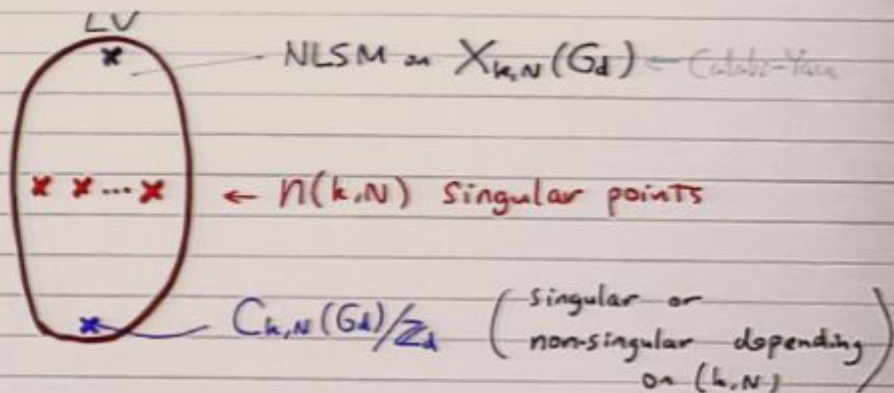 LV
NLSM on X_{k,N}(G_d) ← Calabi-Yau
x x ... x ← n(k,N) singular points
C_{k,N}(G_d)/Z_d ( singular or
non-singular depending
on (k,N) )